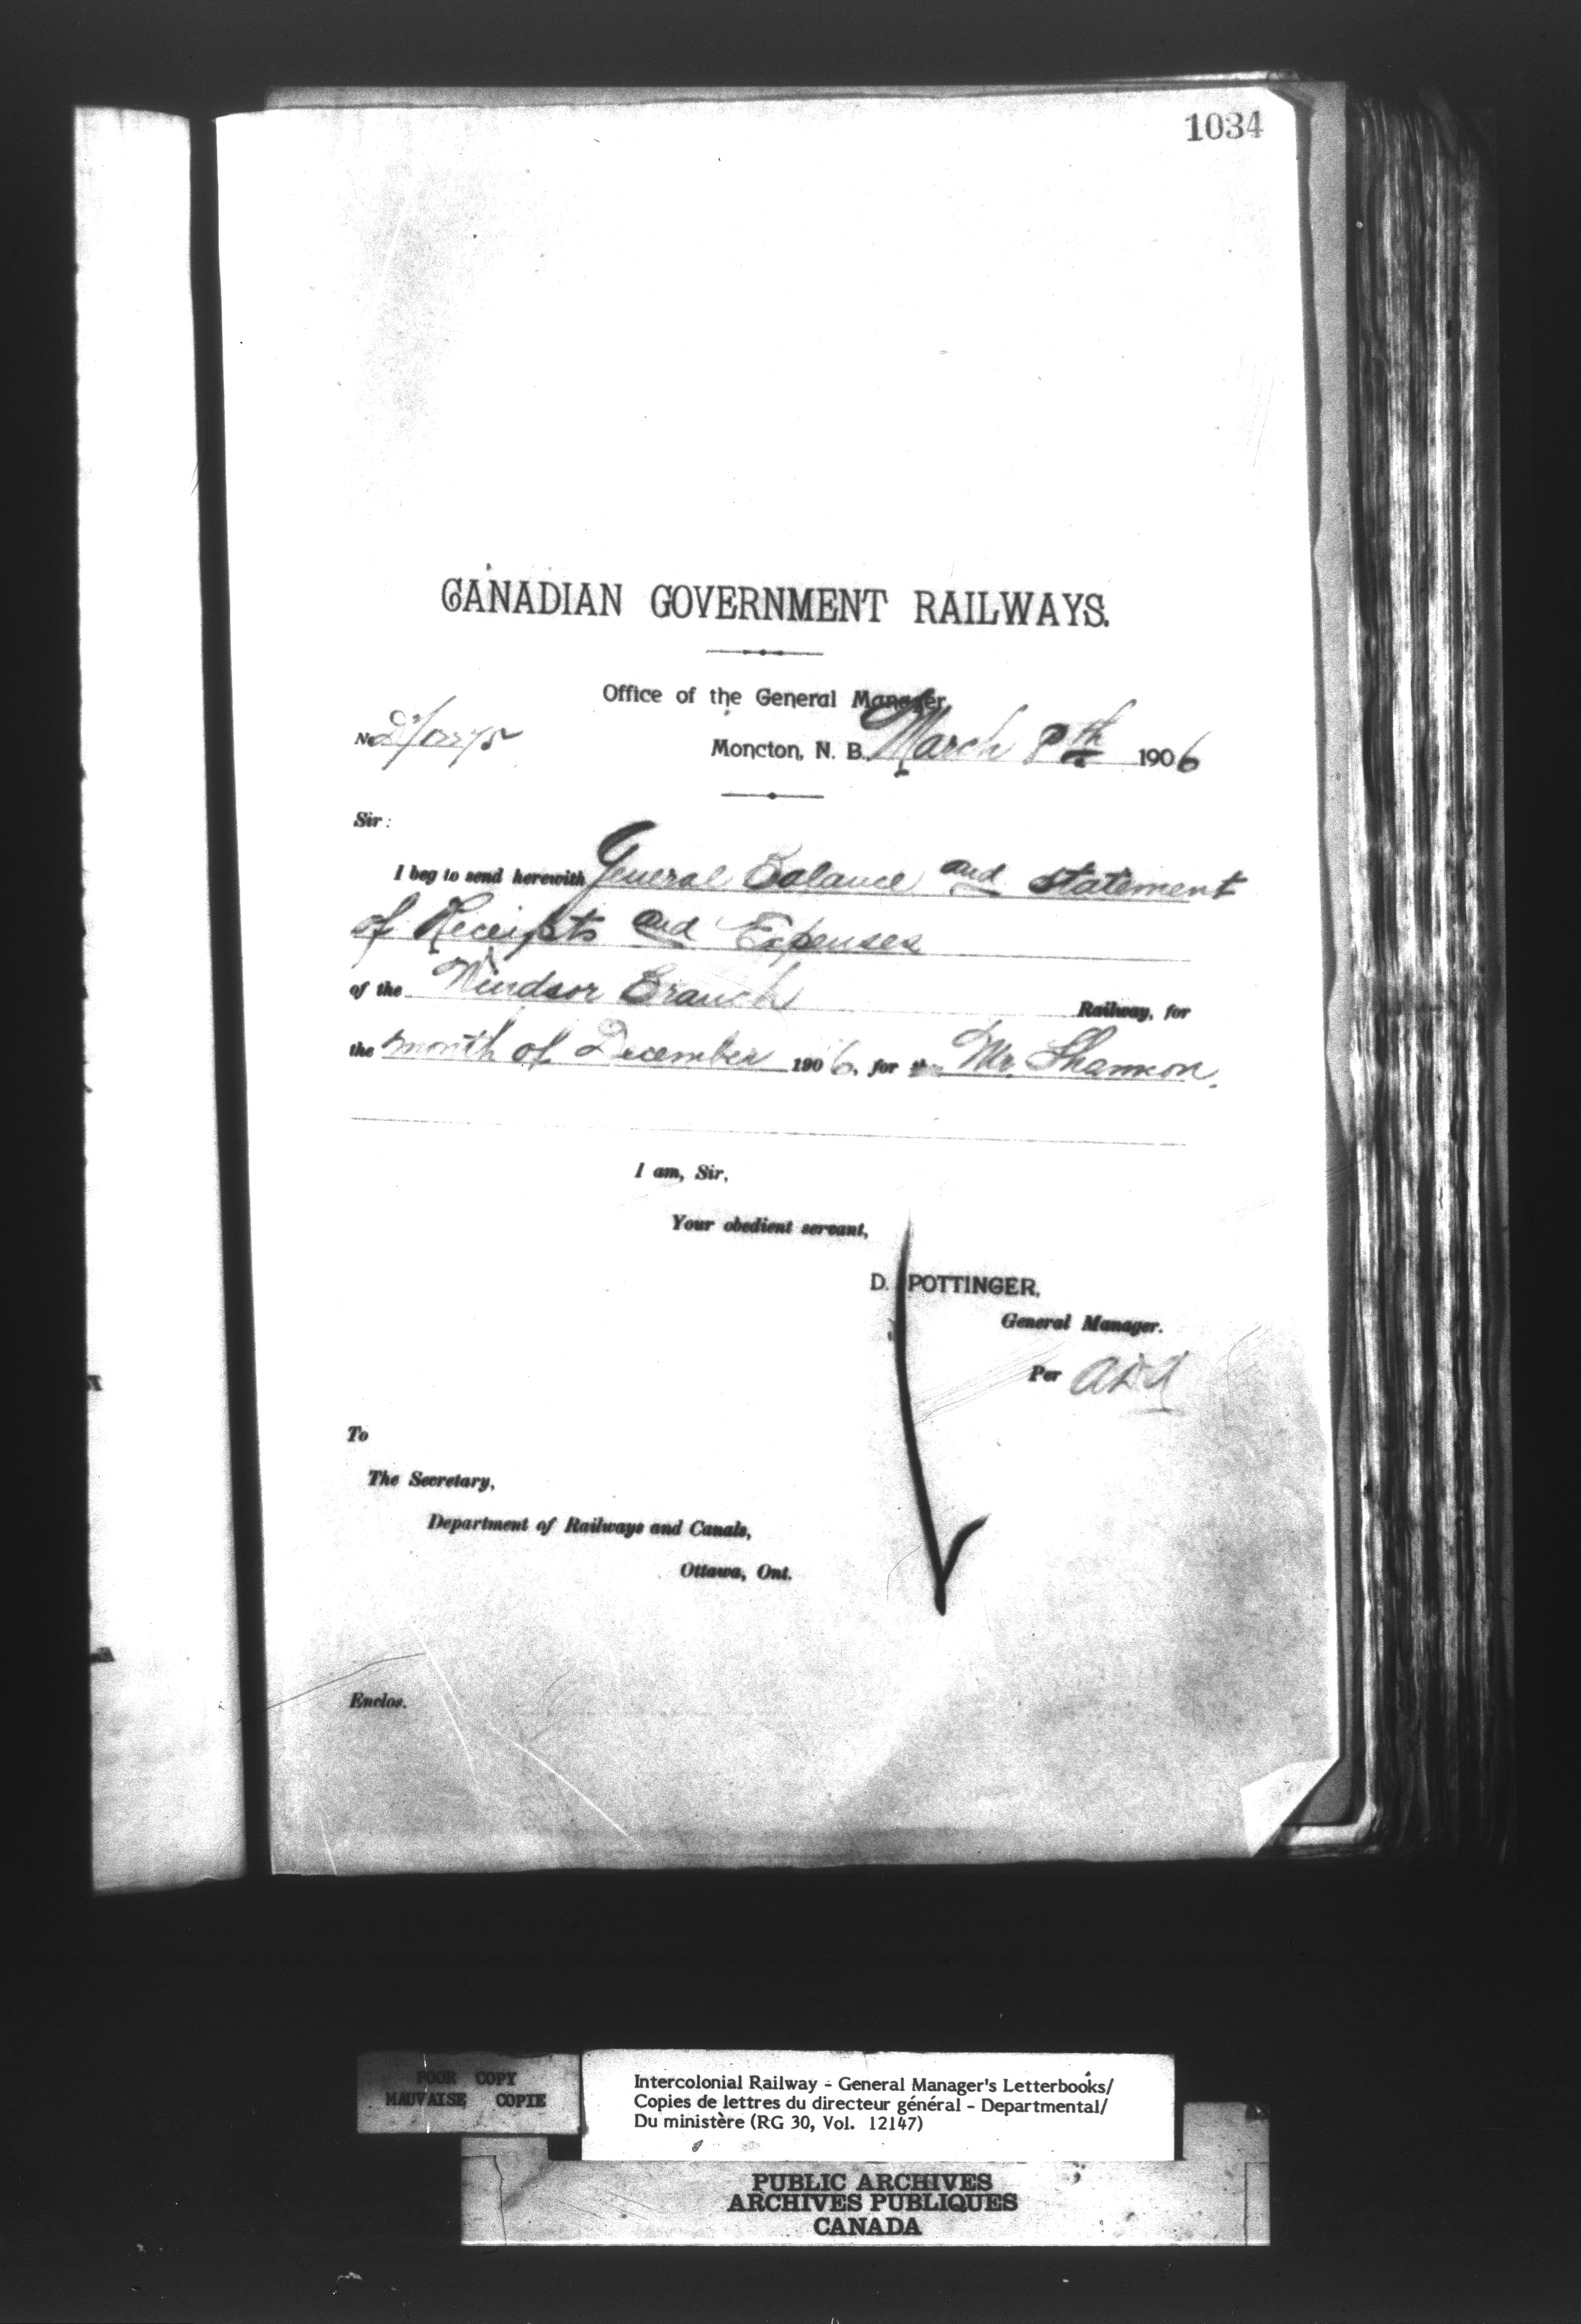 1034
CANADIAN GOVERNMENT RAILWAYS.
Office of the General Manager,
No
Moncton, N. B. March 8th 1906
Sir:
I beg to send herewith General Balance and Statement
of Receipts and Expenses
of the Windsor Branch Railway, for
the month of December 1906, for Mr. Shannon.
I am, Sir,
Your obedient servant,
D. POTTINGER,
General Manager.
Per
To
The Secretary,
Department of Railways and Canals,
Ottawa, Ont.
Enclos.
POOR COPY
MAUVAISE COPIE
Intercolonial Railway - General Manager's Letterbooks/
Copies de lettres du directeur général - Departmental/
Du ministère (RG 30, Vol. 12147)
PUBLIC ARCHIVES
ARCHIVES PUBLIQUES
CANADA